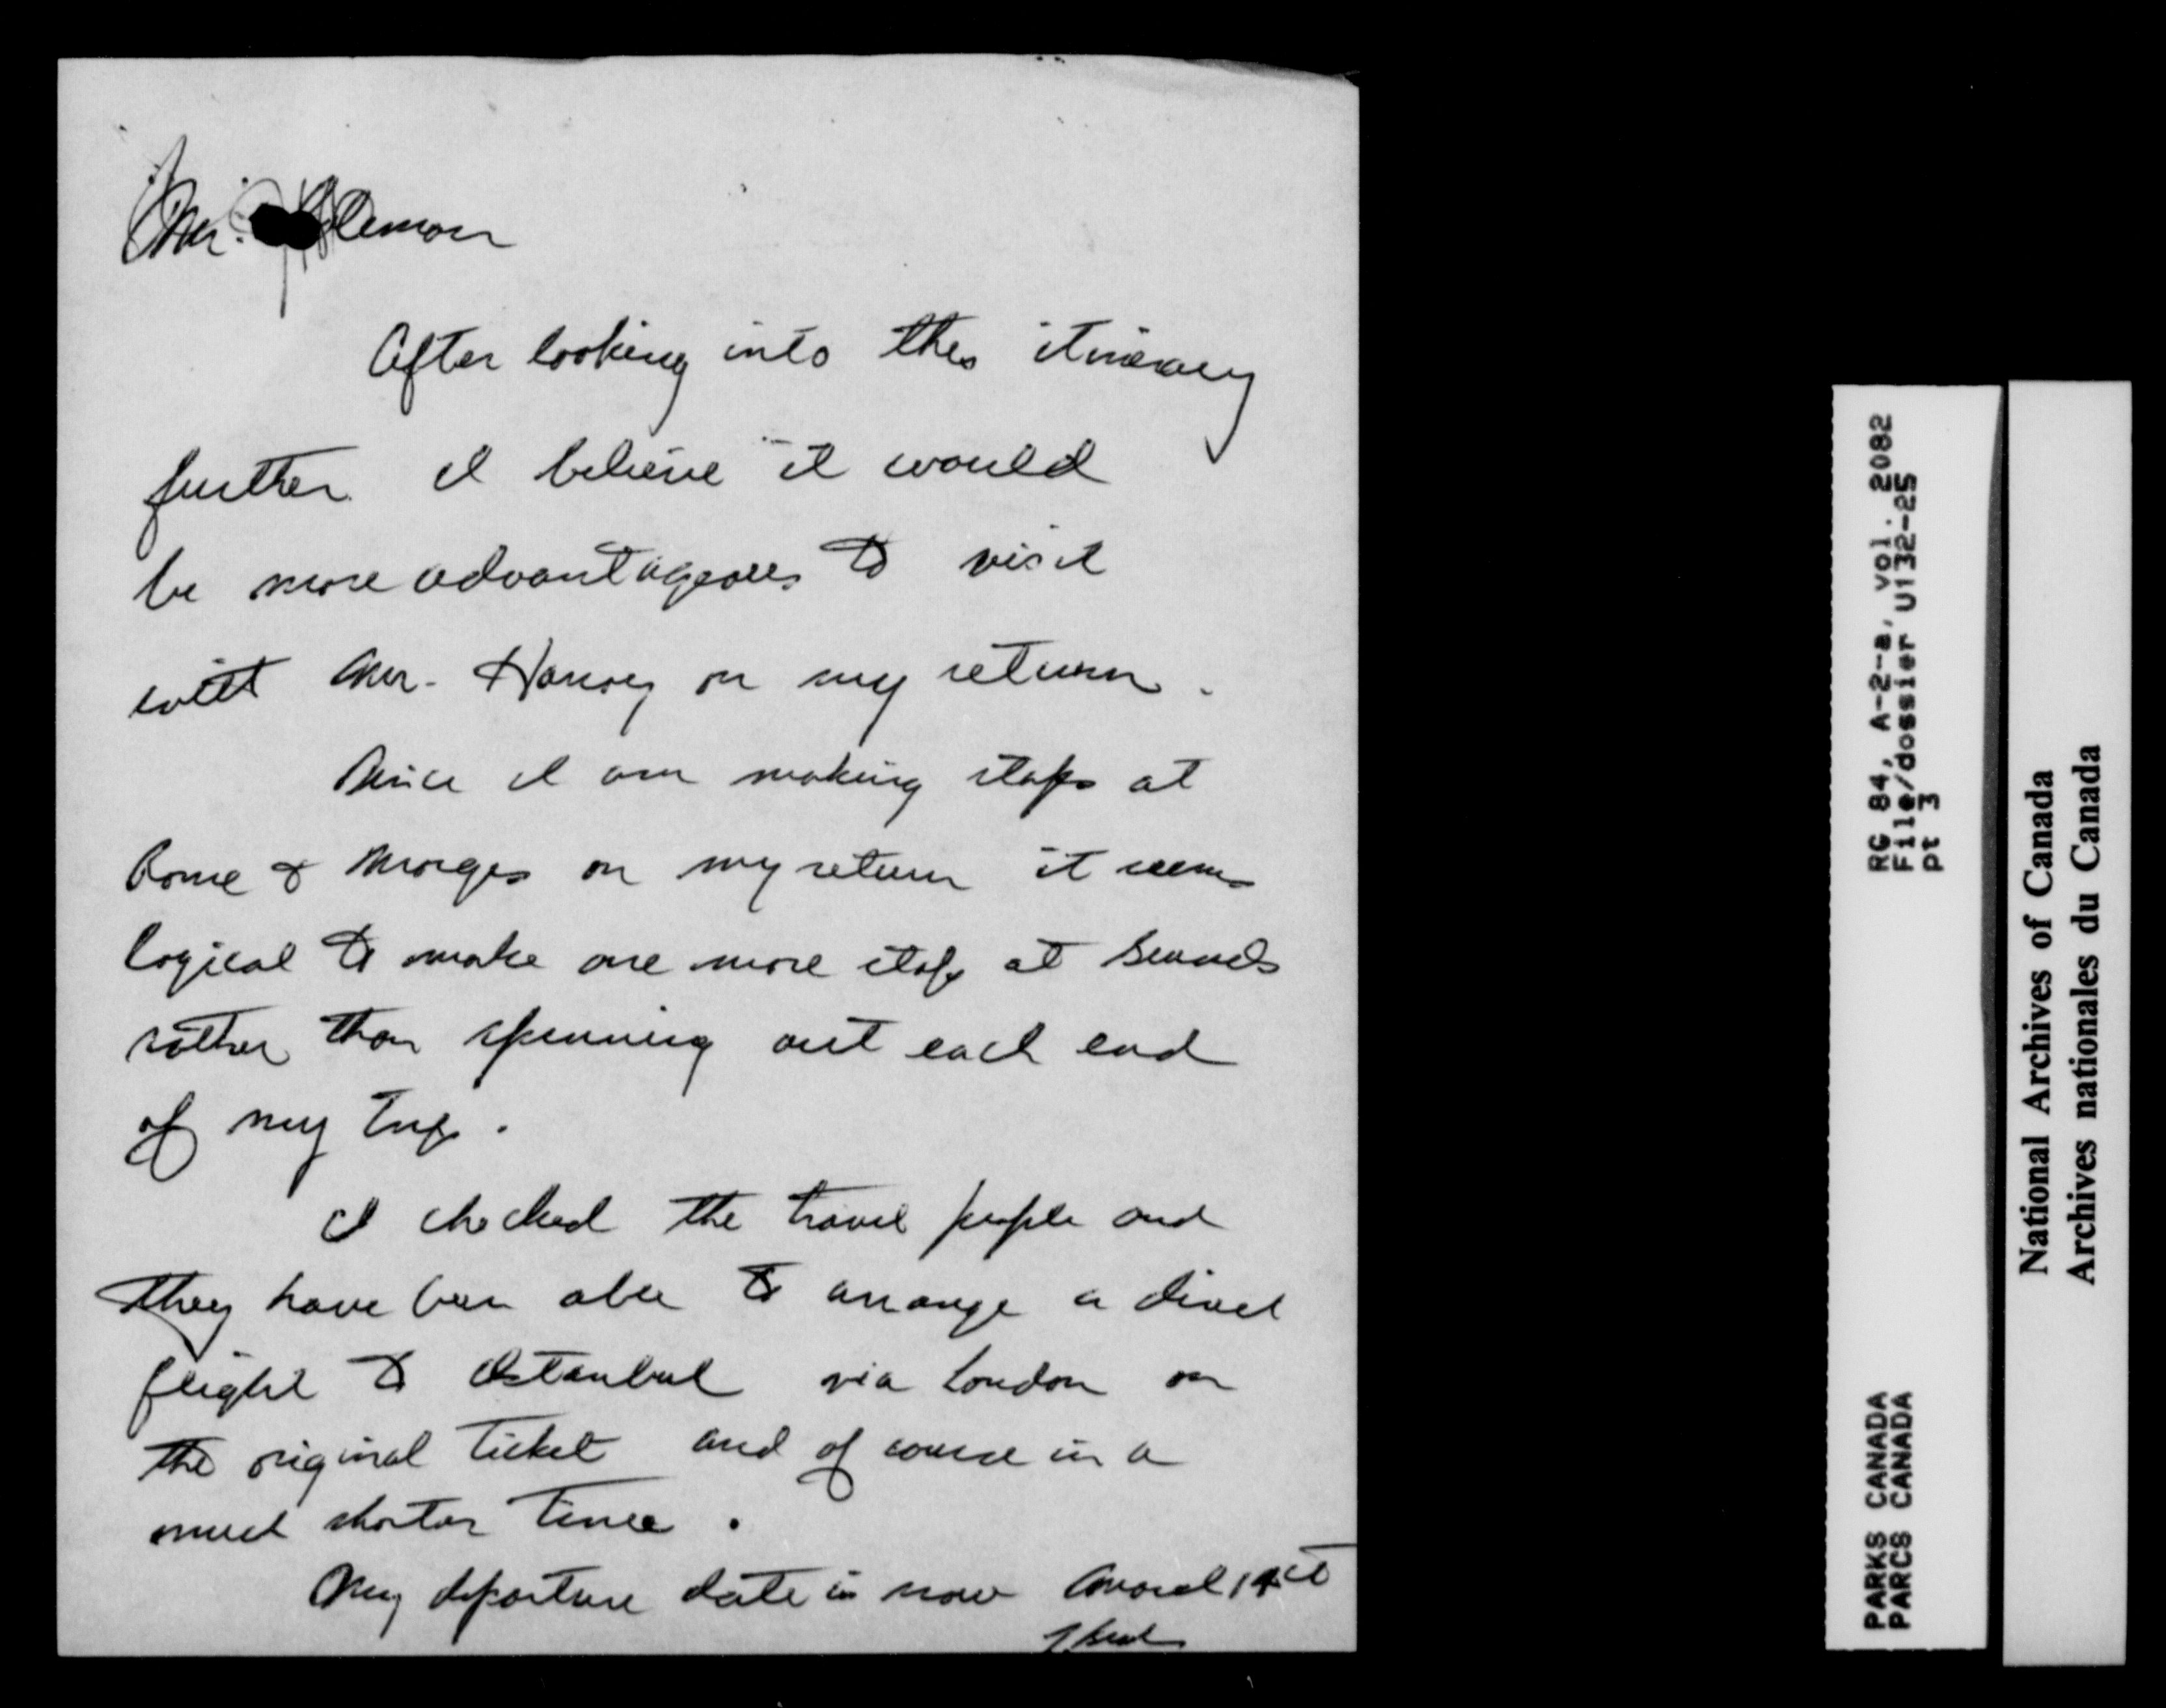 Mr. Coleman
After looking into this itinerary
further I believe it would
be more advantageous to visit
with Mr. Harvey on my return.
Since I am making stops at
Rome & Morges on my return it seems
logical to make one more stop at
rather than spinning out each end
of my trip.
I checked the travel people and
they have been able to arrange a direct
flight to Istanbul via London on
the original ticket and of course in a
much shorter time.
My departure date is now March
RG 84, A-2-a, vol. 2082
File/dossier U132-25
pt 3
PARKS CANADA
PARCS CANADA
National Archives of Canada
Archives nationales du Canada